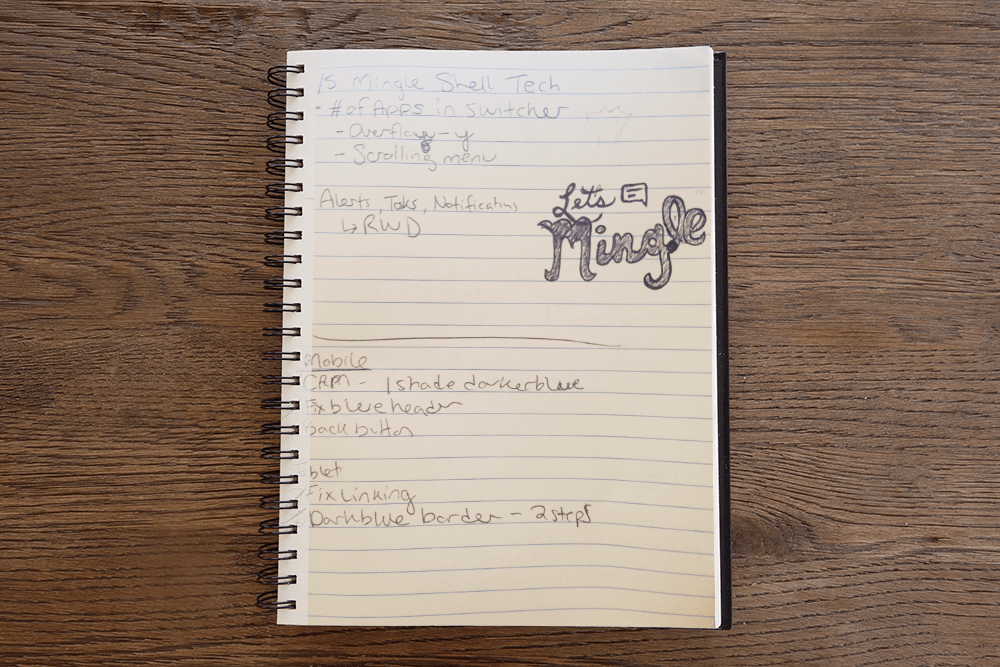 15 Mingle Shell Tech
• # of Apps in switcher
- Overflow-y
- Scrolling menu
Alerts, Tasks, Notifications
↳ RWD
Let's
Mingle
Mobile
CRM - 1 shade darker blue
Fix blue header
back button
blet
Fix Linking
Dark blue border - 2 steps